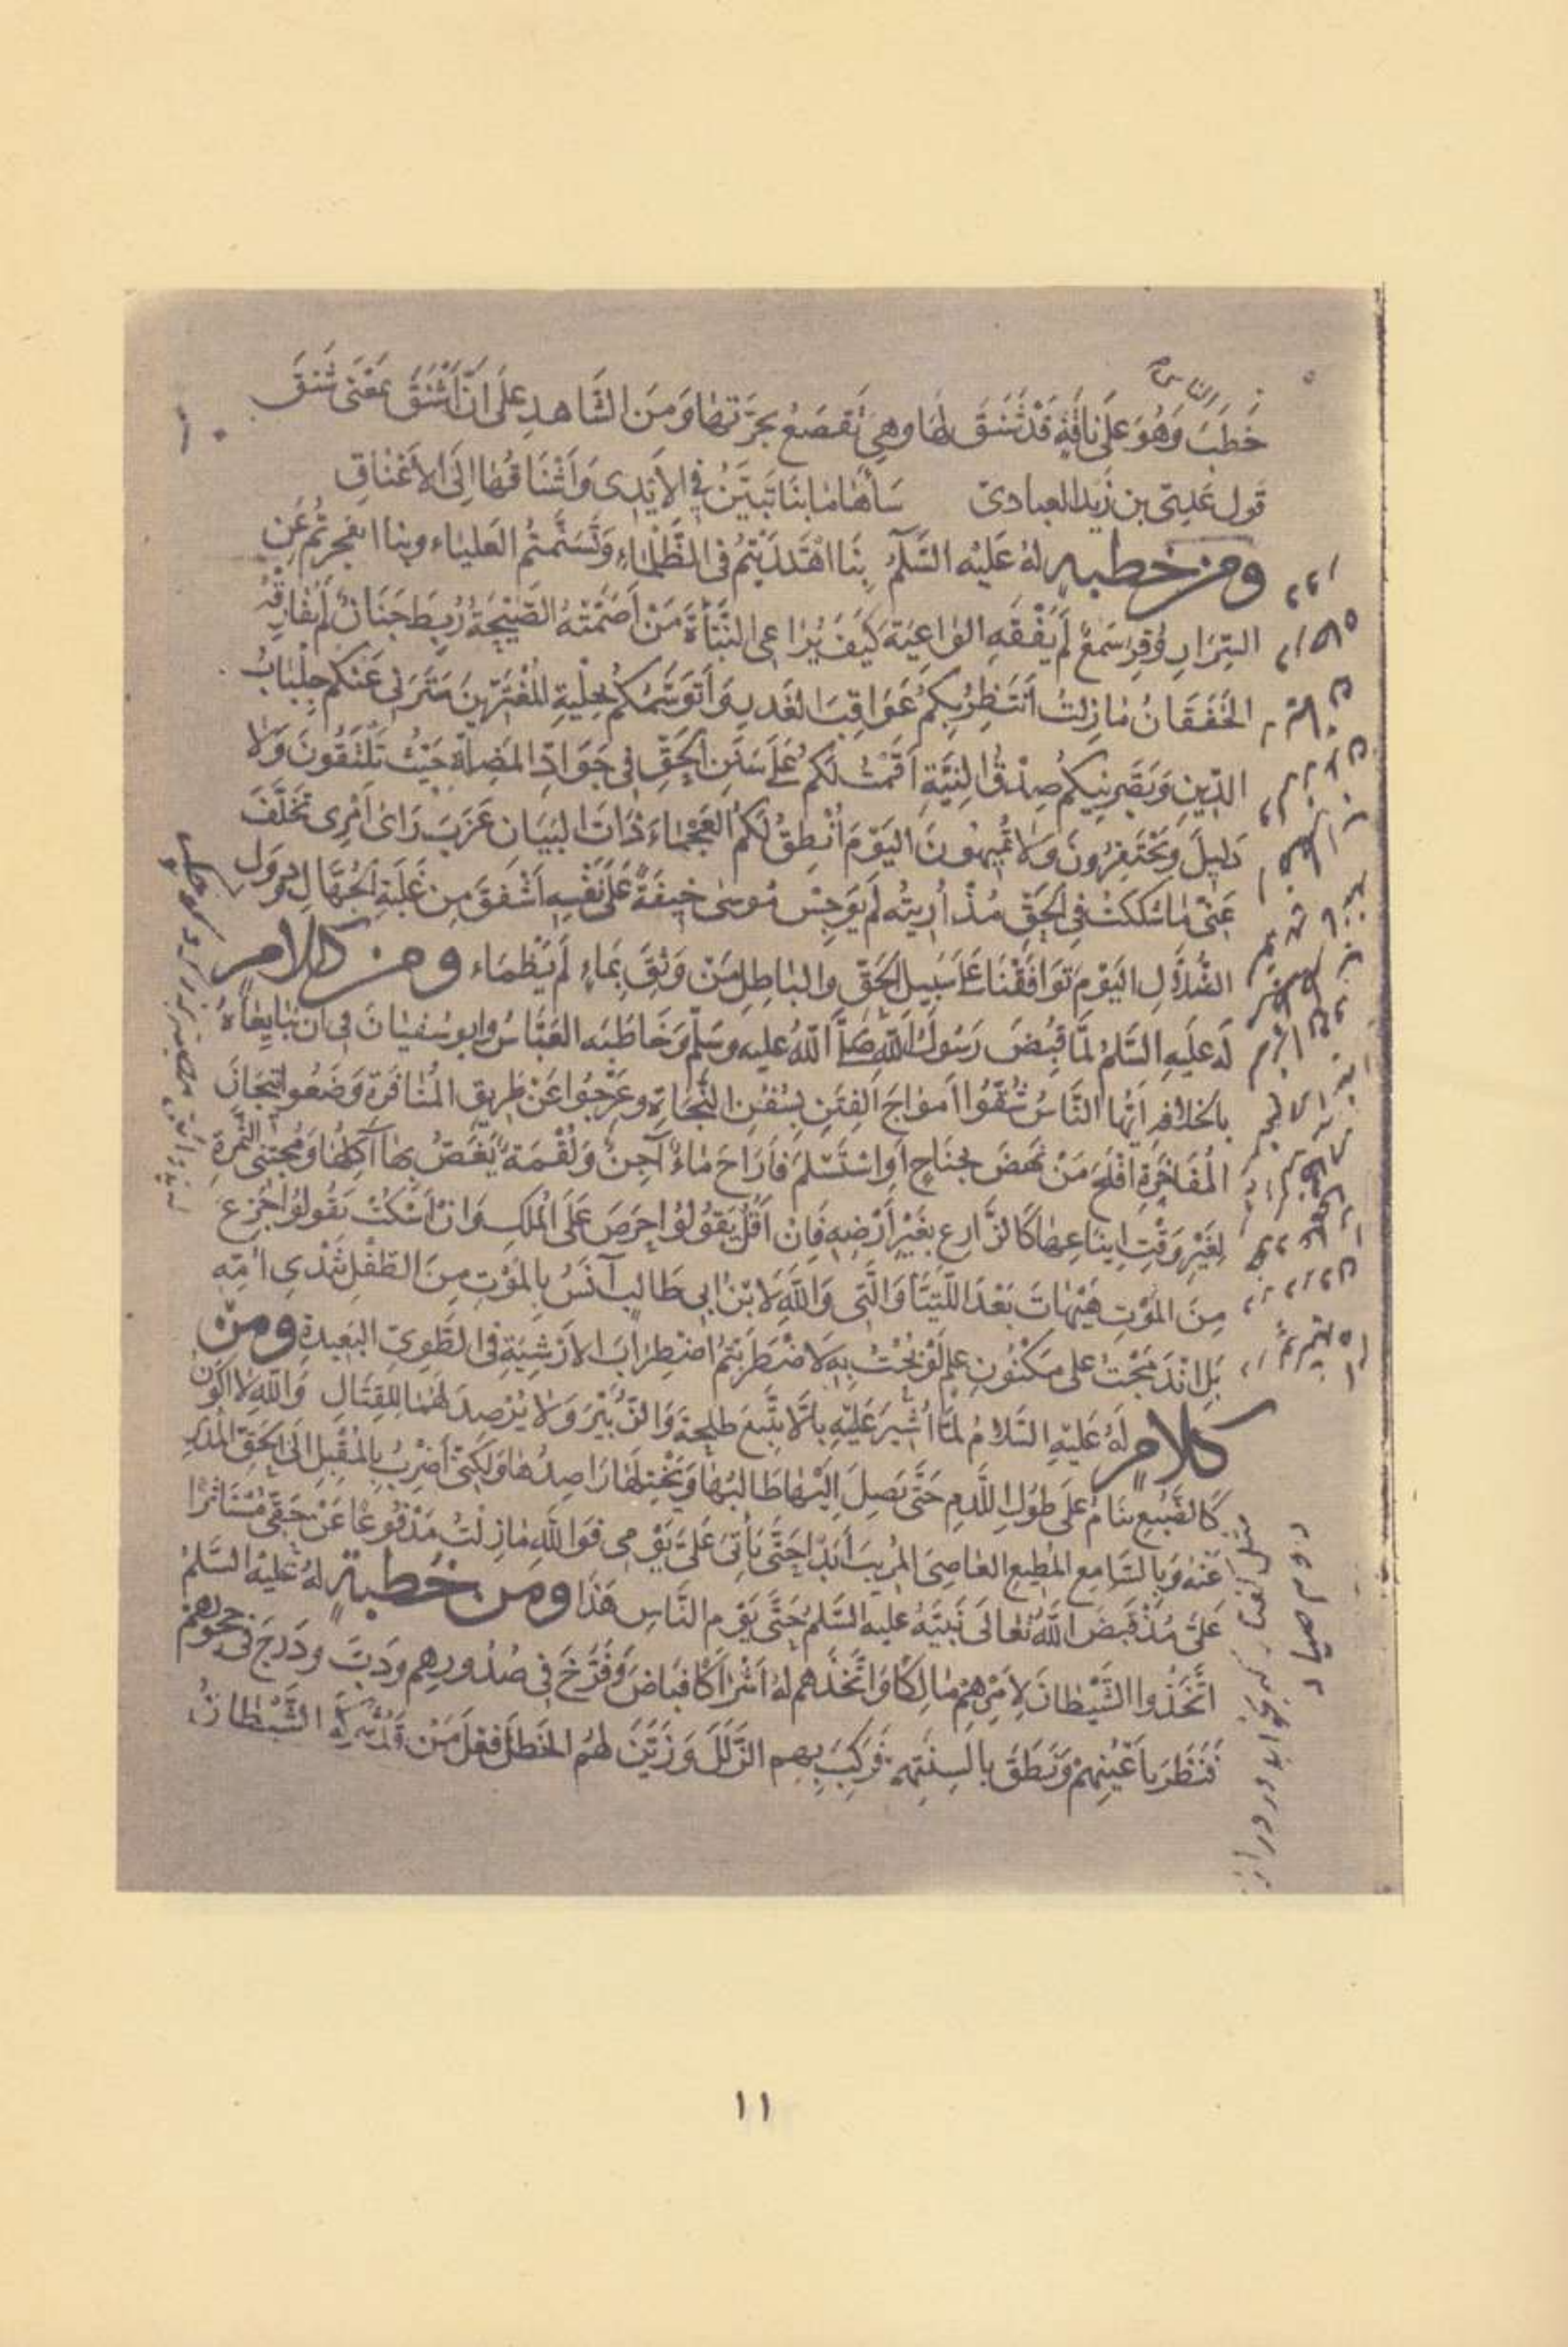 الناس
خَطَبَ وَهُوَ عَلَى نَاقَةٍ قَدْ شَنَقَ لَهَا وهِيَ تَقْصَعُ بِجَرَّتِهَا وَمِنَ الشَّاهِدِ عَلَى أَنَّ أَشْنَقَ بِمَعْنَى شَنَقَ
قول عَدِيّ بن زَيد العبادىّ سَأَهَا مَا بِنَا تَبَيَّنَ فِي الأَيْدِى وَأَشْنَاقُهَا إِلَى الأَعْنَاقِ
ومن خطبه لهُ عَلَيْهِ السَّلَمُ بِنَا اهْتَدَيْتُمْ فى الظَّلْمَاءِ وَتَسَنَّمْتُمُ العَلْيَاء وبِنَا انفجرتُم عَنِ
السِّرَارِ وُقِرَ سَمْعٌ لَمْ يَفْقَهِ الوَاعِيَةَ كَيْفَ يُرَاعِى النَّبْأَةَ مَنْ أَصَمَّتْهُ الصَّيْحَةُ رُبِطَ جَنَانٌ لَمْ يُفَارِقْهُ
الخَفَقَانُ مَا زِلْتُ أَنْتَظِرُ بِكُمْ عَوَاقِبَ الغَدْرِ وَأَتَوَسَّمُكُمْ بِحِلْيَةِ المُغْتَرِّينَ سَتَرَنِى عَنْكُم جِلْبَابُ
الدِّينِ وَبَصَّرَنِيكُمْ صِدْقُ النِّيَّةِ أَقَمْتُ لَكُمْ عَلَى سَنَنِ الحَقِّ فِى جَوَادِّ المَضِلَّةِ حَيْثُ تَلْتَقُونَ وَلَا
دَلِيلَ وَتَحْتَفِرُونَ وَلَا تُمِيهُونَ اليَوْمَ أُنْطِقُ لَكُمُ العَجْمَاءَ ذَاتَ البَيَانِ عَزَبَ رَاىُ امْرِئٍ تَخَلَّفَ
عَنِّى مَا شَكَكْتُ فِى الحَقِّ مُذْ أُرِيتُه لَمْ يُوجِسْ مُوسَى خِيفَةً عَلَى نَفْسِهِ أَشْفَقَ مِنْ غَلَبَةِ الجُهَّالِ وَدُوَلِ
الضُّلَّالِ اليَوْمَ تَوَافَقْنَا عَلَى سَبِيلِ الحَقِّ والبَاطِلِ مَنْ وَثِقَ بِمَاءٍ لَمْ يَظْمَاء ومن كلام
لَهُ عَلَيهِ السَّلَمُ لَمَّا قُبِضَ رَسُولُ اللهِ صَلَّى اللهُ عليه وسَلَّم وَخَاطَبَه العَبَّاسُ وابو سُفْيَانَ فِى أَنْ يُبَايِعَاهُ
بالخلافةِ أيُّها النَّاسُ شُقُّوا أَمْوَاجَ الفِتَنِ بِسُفُنِ النَّجَاةِ وعَرِّجُوا عَنْ طَرِيقِ المُنَافَرَةِ وَضَعُوا تِيجَانَ
المُفَاخَرَةِ أَفْلَحَ مَنْ نَهَضَ بِجَنَاحٍ أَوِ اسْتَسْلَمَ فَأَرَاحَ مَاءٌ آجِنٌ وَلُقْمَةٌ يَغَصُّ بِهَا آكِلُهَا وَمُجْتَنِى الثَّمَرَةِ
لِغَيْرِ وَقْتِ إِينَاعِهَا كَالزَّارِعِ بِغَيْرِ أَرْضِهِ فَإِنْ أَقُلْ يَقُولُوا حَرَصَ عَلَى المُلكِ وَانْ أَسْكُتْ يَقُولُوا جَزِعَ
مِنَ المَوْتِ هَيْهَاتَ بَعْدَ اللَّتَيَّا وَالَّتِى وَاللهِ لَابْنُ ابى طَالِبٍ آنَسُ بِالمَوْتِ مِنَ الطِّفْلِ بِثَدْىِ أُمِّهِ
بَلِ انْدَمَجْتُ عَلَى مَكْنُونِ عِلْمٍ لَوْ بُحْتُ بِهِ لَاضْطَرَبْتُمُ اضْطِرَابَ الأَرْشِيَةِ فِى الطَّوِىِّ البَعِيدةِ ومن
كلام لَهُ عَلَيْهِ السَّلَامُ لَمَّا أُشِيرَ عَلَيْهِ بِأَلَّا يَتَّبِعَ طَلْحَةَ وَالزُّبَيْرَ وَلَا يُرْصِدَ لَهُمَا القِتَالَ وَاللهِ لَا اكُونُ
كَالضَّبُعِ تَنَامُ عَلَى طُولِ اللَّدْمِ حَتَّى يَصِلَ إِلَيْهَا طَالِبُهَا وَيَخْتِلَهَا رَاصِدُهَا وَلَكِنِّى أَضْرِبُ بِالمُقْبِلِ إِلَى الحَقِّ المُدْبِرَ
عَنْهُ وَبِالسَّامِعِ المُطِيعِ العَاصِىَ المُرِيبَ أَبَدًا حَتَّى يَأْتِىَ عَلَىَّ يَوْمِى فَوَ اللهِ مَازِلْتُ مَدْفُوعًا عَنْ حَقِّى مُسْتَأْثَرًا
عَلَىَّ مُذْ قَبَضَ اللهُ تَعَالَى نَبِيَّهُ عليه السَّلمُ حَتَّى يَوْمِ النَّاسِ هَذَا ومن خطبة لهُ عَلَيْهِ السَّلمُ
اتَّخَذُوا الشَّيْطَانَ لِأَمْرِهِمْ مِلَاكًا وَاتَّخَذَهُم لهُ أَشْرَاكًا فَبَاضَ وَفَرَّخَ فِى صُدُورِهِمْ وَدَبَّ وَدَرَجَ فِى حُجُورِهِمْ
فَنَظَرَ بِأَعْيُنِهِمْ وَنَطَقَ بِأَلْسِنَتِهِمْ فَرَكِبَ بِهِم الزَّلَلَ وَزَيَّنَ لَهُمُ الخَطَلَ فِعْلَ مَنْ قَدْ شَرِكَهُ الشَّيْطَانُ
١١